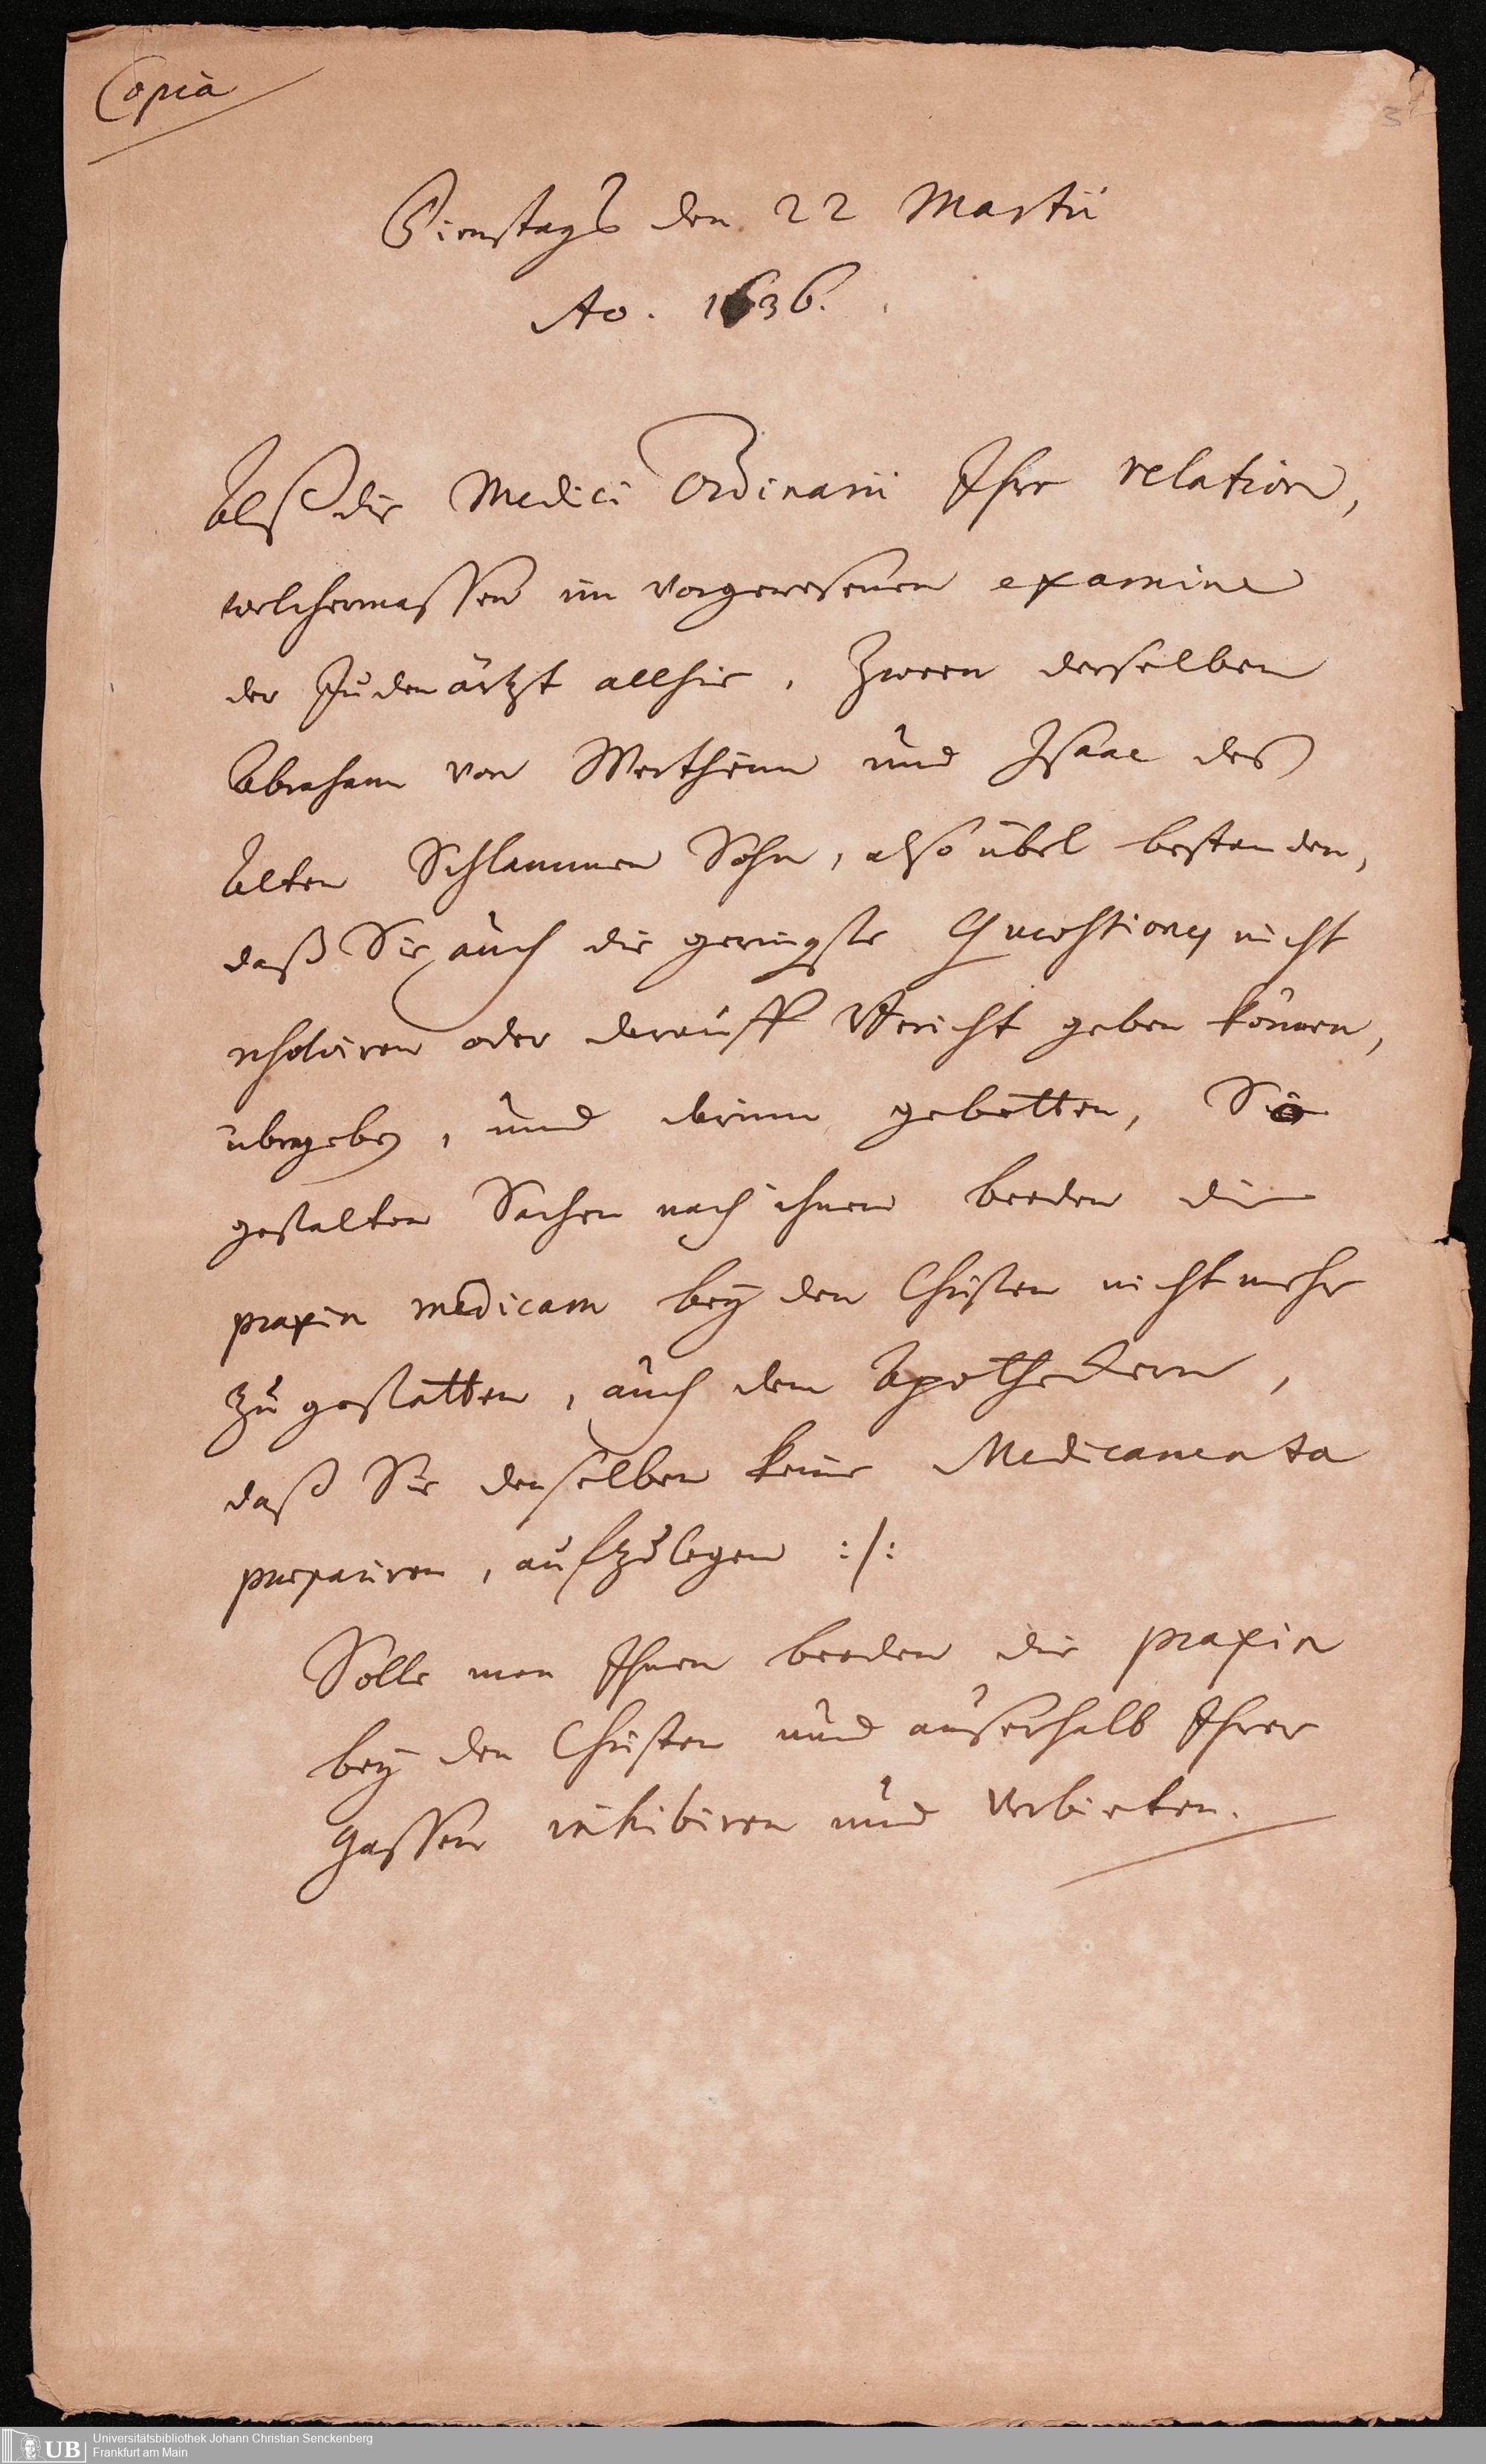 Copia
Dienstags den 22 Martii
Ao. 1636.
Alß die Medici Ordinarii Ihre relation,
welchermassen im vorgewesenen examine
der Juden ärtzt allhie, Zween derselben
Abraham von Wertheim und Isaac des
Alten Schlammen Sohn, also übel bestanden,
daß Sie auch die geringste Quaestiones nicht
resolviren oder darauff Bericht geben können,
übergeben, und darinn gebetten, 
gestalten Sachen nach ihnen beeden die
praxin medicam bey den Christen nicht mehr
zu gestatten, auch den Apotheckern,
daß Sie denselben keine Medicamenta
praepariren, aufzulegen :/:
Solle man Ihnen beeden die praxin
bey den Christen und auserhalb Ihrer
Gassen inhibiren und verbieten.
UB
Universitätsbibliothek Johann Christian Senckenberg
Frankfurt am Main